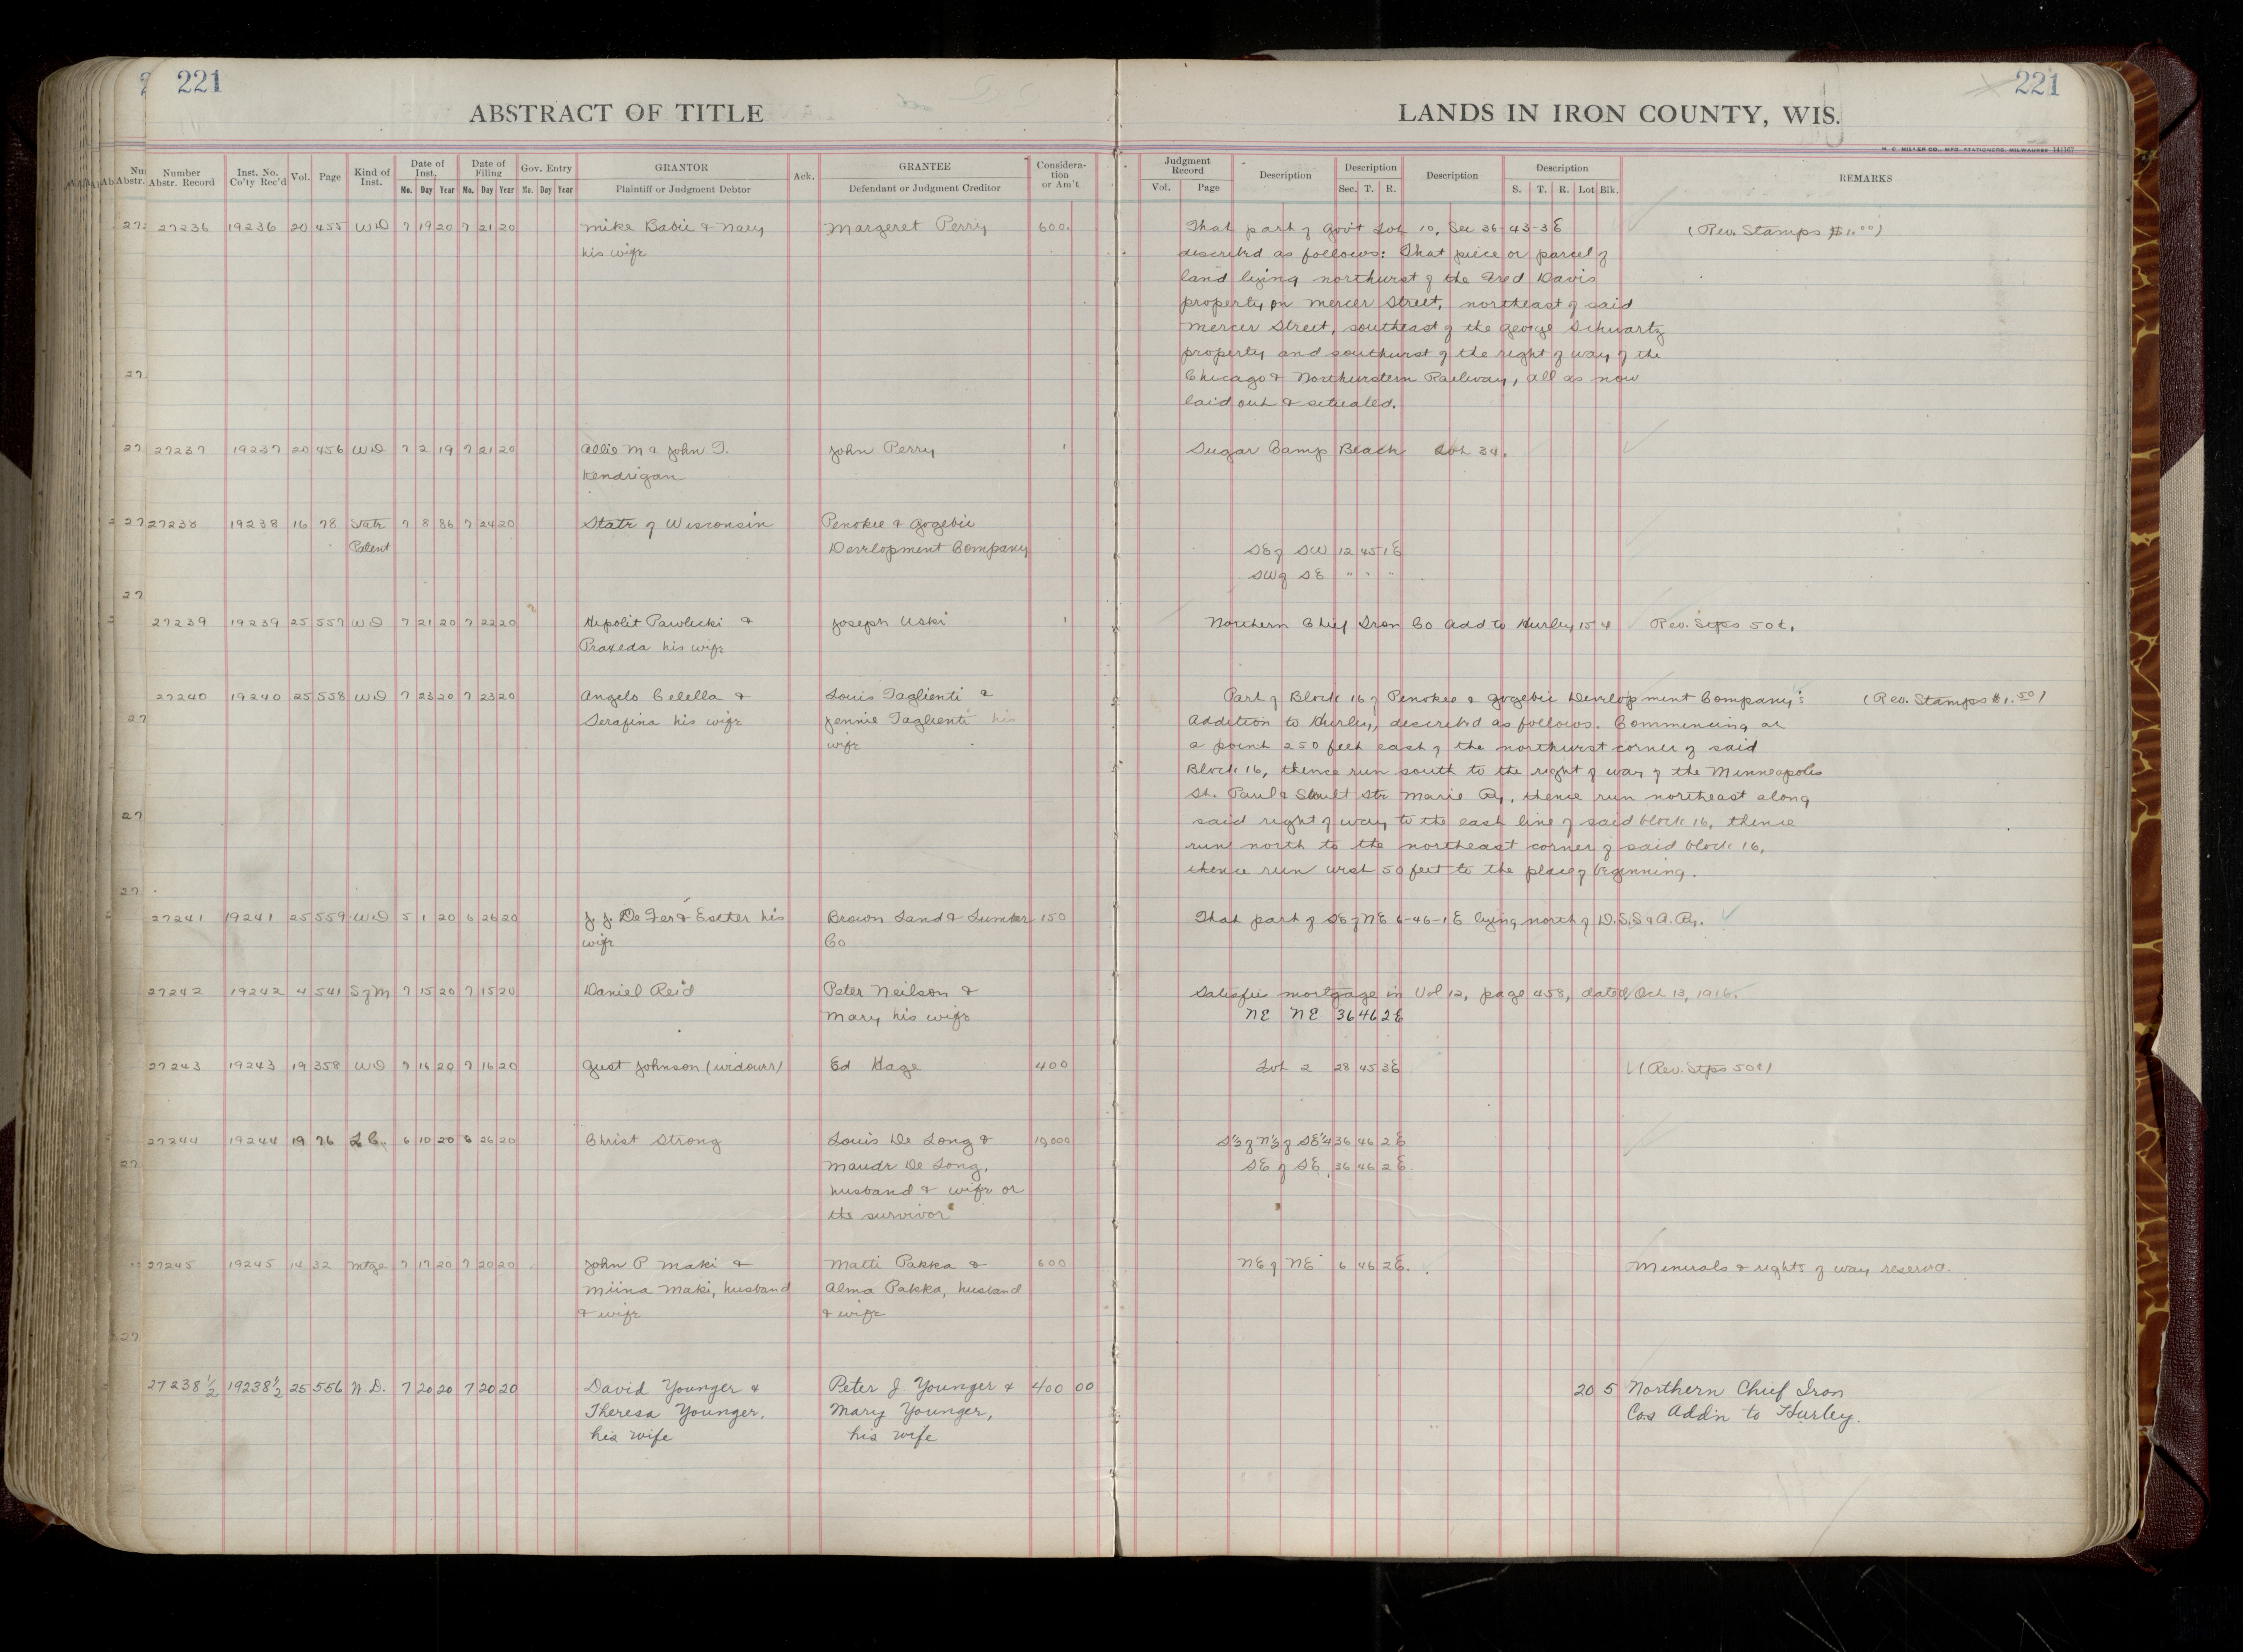 221
221
ABSTRACT OF TITLE
LANDS IN IRON COUNTY, WIS.
Number Abstr. Record Inst. No. Co'ty Rec'd Vol. Page Kind of Inst. Date of Inst. Mo. Day Year Date of Filing Mo. Day Year Gov. Entry Mo. Day Year GRANTOR Plaintiff or Judgment Debtor Ack. GRANTEE Defendant or Judgment Creditor Considera-tion or Am't Judgment Record Vol. Page Description Description Sec. T. R. Description Description S. T. R. Lot Blk. REMARKS
27236 19236 20 455 WD 7 19 20 7 21 20 Mike Babic & Mary Margaret Perry 600. That part of Gov't Lot 10, Sec 36-43-3E (Rev. Stamps $1.00)
his wife described as follows: That piece or parcel of
land lying northwest of the Fred Davis
property on Mercer Street, northeast of said
Mercer Street, southeast of the George Schwartz
property and southwest of the right of way of the
Chicago & Northwestern Railway, all as now
laid out & situated.
27237 19237 20 456 WD 7 2 19 7 21 20 Allie M & John T. John Perry 1 Sugar Camp Beach Lot 34.
Kendrigan
27238 19238 16 78 State 7 8 86 7 24 20 State of Wisconsin Penokee & Gogebic
Patent Development Company SE of SW 12 45 1E
SW of SE " " "
27239 19239 25 557 WD 7 21 20 7 22 20 Hipolit Pawlicki & Joseph Uski 1 Northern Chief Iron Co Add to Hurley 15 4 Rev. Stps 50¢.
Praxeda his wife
27240 19240 25 558 WD 7 23 20 7 23 20 Angelo Celella & Louis Taglienti & Part of Block 16 of Penokee & Gogebic Development Company's (Rev. Stamps $1.50)
Serafina his wife Jennie Taglienti his Addition to Hurley, described as follows. Commencing at
wife a point 250 feet east of the northwest corner of said
Block 16, thence run south to the right of way of the Minneapolis
St. Paul & Sault Ste Marie Ry. thence run northeast along
said right of way to the east line of said block 16, thence
run north to the northeast corner of said block 16,
thence run west 50 feet to the place of beginning.
27241 19241 25 559 WD 5 1 20 6 26 20 J. J. De Fer & Esther his Brown Land & Lumber 150 That part of SE of NE 6-46-1E lying north of D.S.S & A. Ry.
wife Co
27242 19242 4 541 S of M 7 15 20 7 15 20 Daniel Reid Peter Neilson & Satisfies mortgage in Vol 12, page 458, dated Oct 13, 1916.
Mary his wife NE NE 36 46 2E
27243 19243 19 358 WD 7 16 20 7 16 20 Gust Johnson (widower) Ed Hage 400 Lot 2 28 45 3E (Rev. Stps 50¢)
27244 19244 19 76 L C. 6 10 20 6 26 20 Christ Strong Louis De Long & 10,000 S½ of N½ of SE¼ 36 46 2E
Maude De Long, SE of SE 36 46 2E.
husband & wife or
the survivor
27245 19245 14 32 Mtge 7 17 20 7 20 20 John P Maki & Matti Pakka & 600 NE of NE 6 46 2E. Minerals & rights of way reserved.
Miina Maki, husband Alma Pakka, husband
& wife & wife
27238½ 19238½ 25 556 W.D. 7 20 20 7 20 20 David Younger & Peter J Younger & 400 00 20 5 Northern Chief Iron
Theresa Younger, Mary Younger, Co.s Add'n to Hurley.
his wife his wife